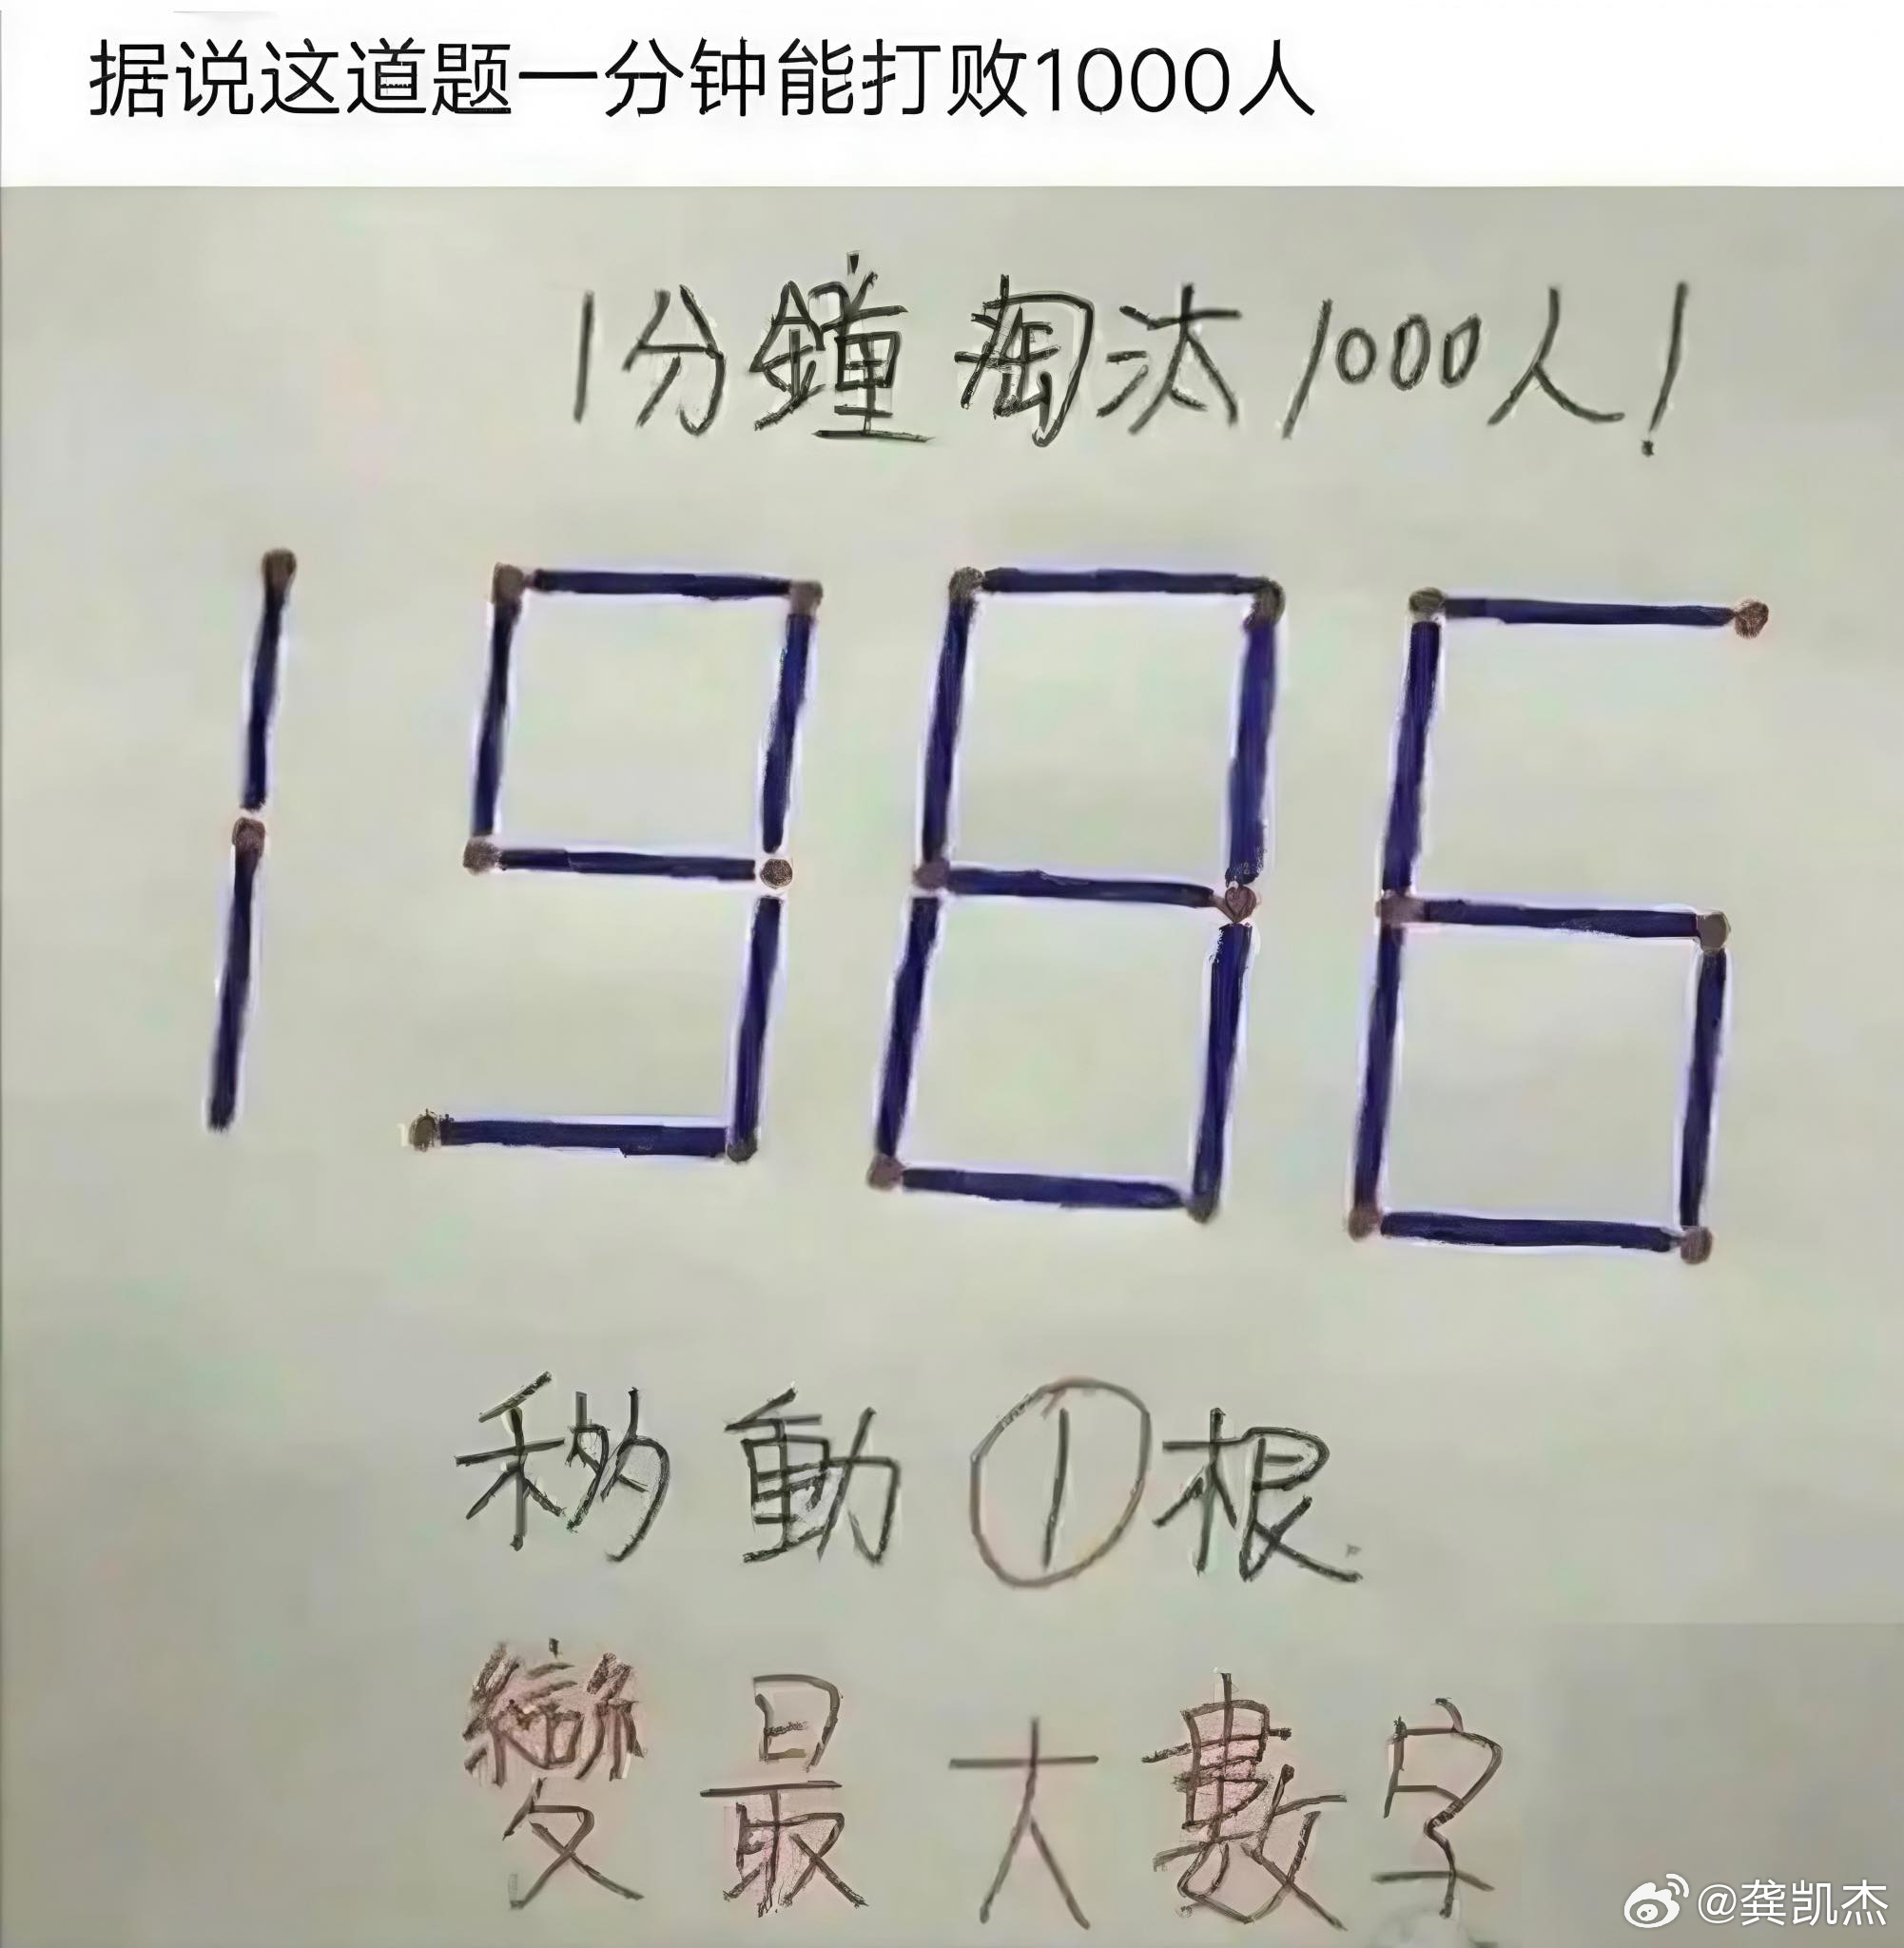 据说这道题一分钟能打败1000人
1分鐘淘汰1000人!
1986
移動①根
變最大數字
@龚凯杰